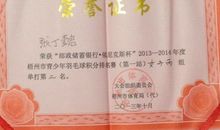 荣誉证书
张丁懿
荣获“邮政储蓄银行•佩尼克斯杯”2013—2014年度
梧州市青少年羽毛球积分排名赛（第一站）
组单打第二名。
大会组织委员会
梧州市体育局（代）
二〇一三年十月